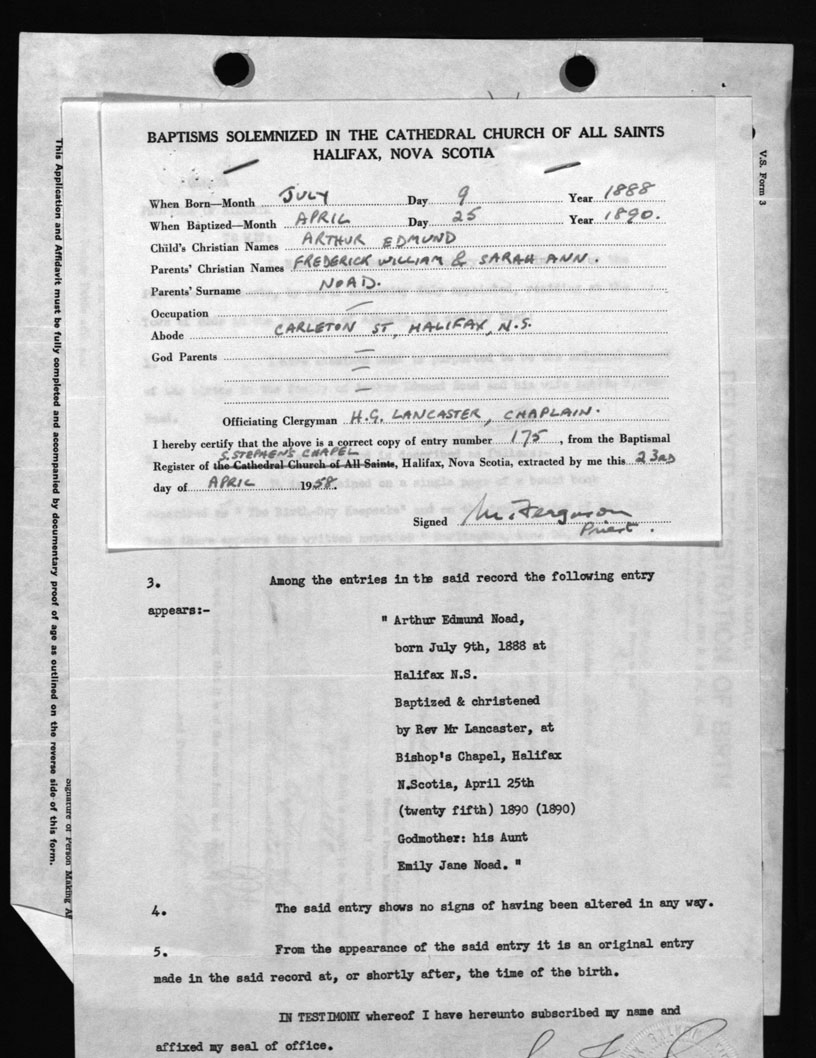 BAPTISMS SOLEMNIZED IN THE CATHEDRAL CHURCH OF ALL SAINTS
HALIFAX, NOVA SCOTIA
When Born—Month JULY Day 9 Year 1888
When Baptized—Month APRIL Day 25 Year 1890.
Child's Christian Names ARTHUR EDMUND
Parents' Christian Names FREDERICK WILLIAM & SARAH ANN.
Parents' Surname NOAD.
Occupation —
Abode CARLETON ST, HALIFAX, N.S.
God Parents —
—
—
Officiating Clergyman H.G. LANCASTER, CHAPLAIN.
I hereby certify that the above is a correct copy of entry number 175, from the Baptismal
S. STEPHEN'S CHAPEL
Register of the Cathedral Church of All Saints, Halifax, Nova Scotia, extracted by me this 23RD
day of APRIL 1958.
Signed M. Ferguson
Priest.
3. Among the entries in the said record the following entry
appears:-
" Arthur Edmund Noad,
born July 9th, 1888 at
Halifax N.S.
Baptized & christened
by Rev Mr Lancaster, at
Bishop's Chapel, Halifax
N.Scotia, April 25th
(twenty fifth) 1890 (1890)
Godmother: his Aunt
Emily Jane Noad. "
4. The said entry shows no signs of having been altered in any way.
5. From the appearance of the said entry it is an original entry
made in the said record at, or shortly after, the time of the birth.
IN TESTIMONY whereof I have hereunto subscribed my name and
affixed my seal of office.
This Application and Affidavit must be fully completed and accompanied by documentary proof of age as outlined on the reverse side of this form.
Signature of Person Making Af
V.S. Form 3